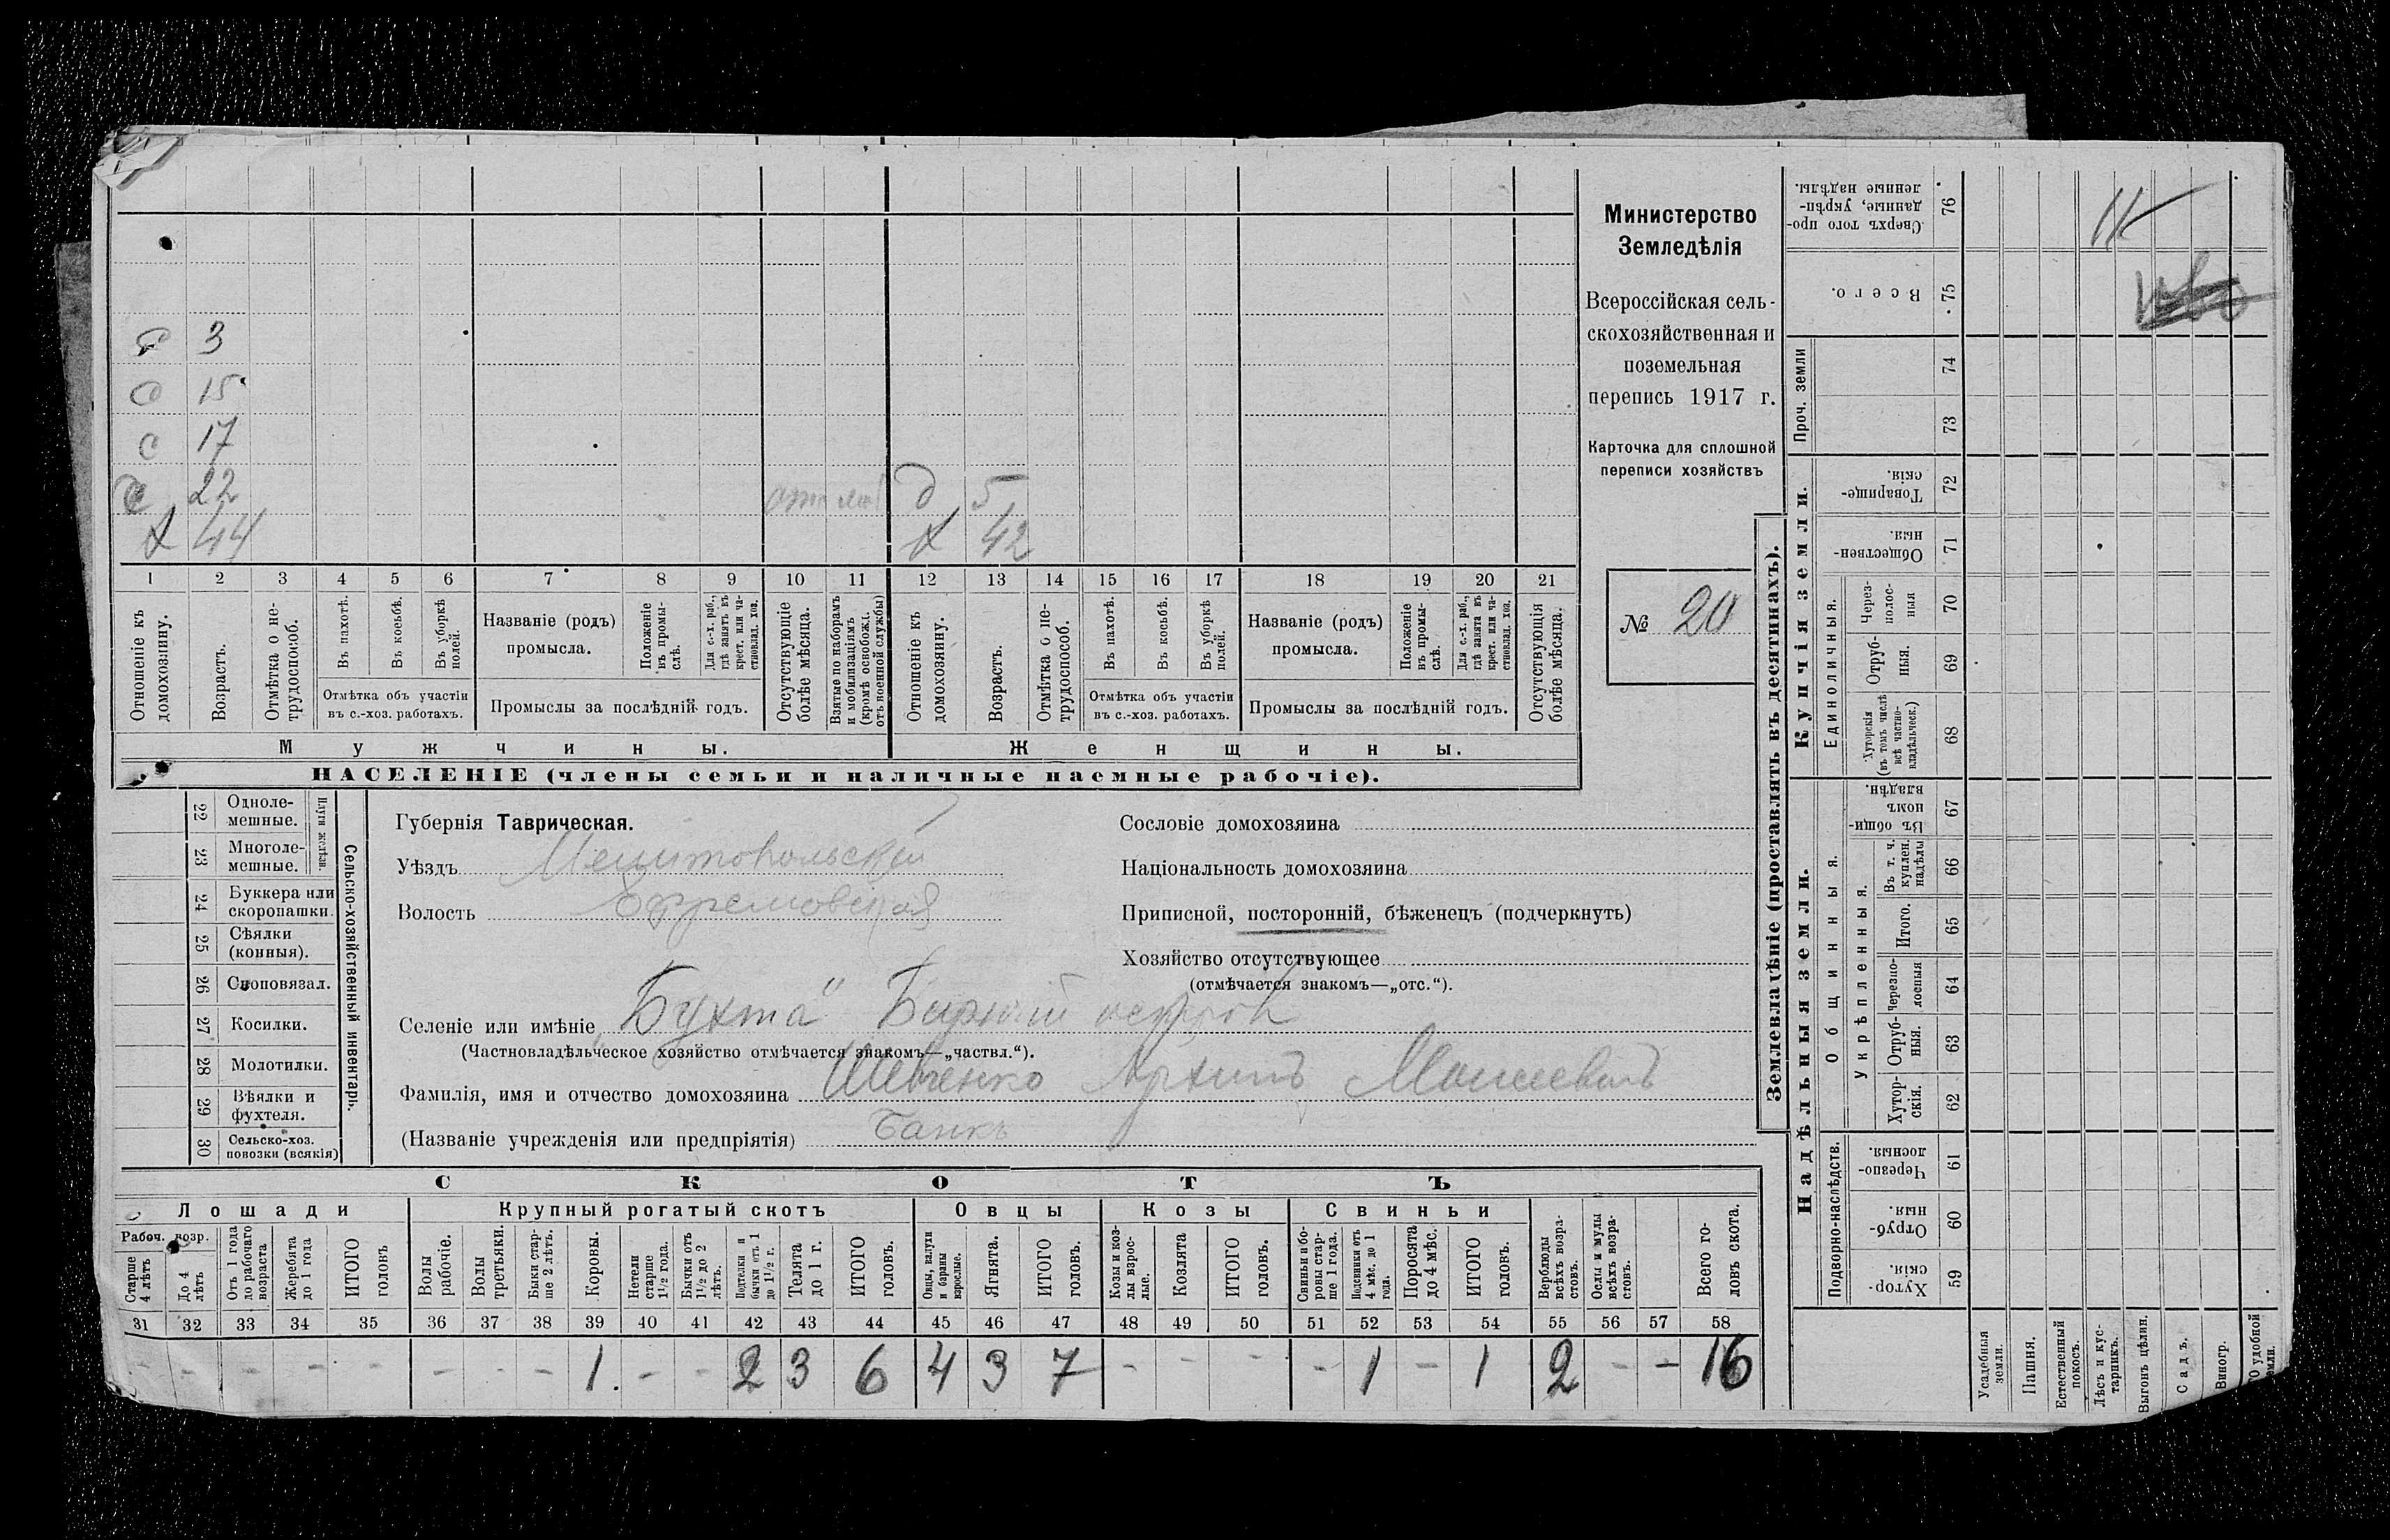 3
15
17
22
44
5
42
1 2 3 4 5 6 7 8 9 10 11 12 13 14 15 16 17 18 19 20 21
Отношеніе къ домохозяину.
Возрастъ.
Отмѣтка о не-трудоспособ.
Въ пахотѣ.
Въ косьбѣ.
Въ уборкѣ полей.
Отмѣтка объ участіи
въ с.-хоз. работахъ.
Названіе (родъ)
промысла.
Положеніе въ промы-слѣ.
Для с.-х. раб., гдѣ занятъ въ крест. или ча-стновлад. хоз.
Промыслы за послѣдній годъ.
Отсутствующіе болѣе мѣсяца.
Взятые по наборамъ и мобилизаціямъ (кромѣ освобожд. отъ военной службы)
Отношеніе къ домохозяину.
Возрастъ.
Отмѣтка о не-трудоспособ.
Въ пахотѣ.
Въ косьбѣ.
Въ уборкѣ полей.
Отмѣтка объ участіи
въ с.-хоз. работахъ.
Названіе (родъ)
промысла.
Положеніе въ промы-слѣ.
Для с.-х. раб., гдѣ занята въ крест. или ча-стновлад. хоз.
Промыслы за послѣдній годъ.
Отсутствующія болѣе мѣсяца.
Мужчины.
Женщины.
НАСЕЛЕНІЕ (члены семьи и наличные наемные рабочіе).
Министерство
Земледѣлія
Всероссійская сель-
скохозяйственная и
поземельная
перепись 1917 г.
Карточка для сплошной
переписи хозяйствъ
№ 20
22 Одноле-мешные.
23 Многоле-мешные.
Плуги желѣзн.
24 Буккера или скоропашки.
25 Сѣялки (конныя).
26 Сноповязал.
27 Косилки.
28 Молотилки.
29 Вѣялки и фухтеля.
30 Сельско-хоз. повозки (всякія)
Сельско-хозяйственный инвентарь.
Губернія Таврическая.
Уѣздъ Мелитопольскій
Волость Ефремовская
Селеніе или имѣніе „Бухта" Бирючий островъ
(Частновладѣльческое хозяйство отмѣчается знакомъ—„частвл.“).
Фамилія, имя и отчество домохозяина Шевченко Архипъ Моисеевичъ
(Названіе учрежденія или предпріятія) Банкъ
Сословіе домохозяина
Національность домохозяина
Приписной, посторонній, бѣженецъ (подчеркнуть)
Хозяйство отсутствующее
(отмѣчается знакомъ—„отс.“).
СКОТЪ
Лошади
Крупный рогатый скотъ
Овцы
Козы
Свиньи
Рабоч. возр.
Старше 4 лѣтъ
До 4 лѣтъ
Отъ 1 года до рабочаго возраста
Жеребята до 1 года
ИТОГО головъ
Волы рабочіе.
Волы третьяки.
Быки стар-ше 2 лѣтъ.
Коровы.
Нетели старше 1½ года.
Бычки отъ 1½ до 2 лѣтъ.
Подтелки и бычки отъ 1 до 1½ г.
Телята до 1 г.
ИТОГО головъ.
Овцы, валухи и бараны взрослые.
Ягнята.
ИТОГО головъ.
Козы и коз-лы взрос-лые.
Козлята
ИТОГО головъ.
Свиньи и бо-ровы стар-ше 1 года.
Подсвинки отъ 4 мѣс. до 1 года.
Поросята до 4 мѣс.
ИТОГО головъ.
Верблюды всѣхъ возра-стовъ.
Ослы и мулы всѣхъ возра-стовъ.
Всего го-ловъ скота.
31 32 33 34 35 36 37 38 39 40 41 42 43 44 45 46 47 48 49 50 51 52 53 54 55 56 57 58
- - - - - - - - 1. - - 2 3 6 4 3 7 - - - - 1 - 1 2 - - 16
Землевладѣніе (проставлять въ десятинахъ).
Купчія земли.
Надѣльныя земли.
Сверхъ того про-данные, укрѣп-ленные надѣлы. 76
Всего. 75
Проч. земли
74
73
Товарище-скія. 72
Обществен-ныя. 71
Единоличныя.
Через-полос-ныя 70
Отруб-ныя. 69
Хуторскія (въ томъ числѣ всѣ частно-владѣльческ.) 68
Общинныя.
Въ общи-номъ владѣн. 67
Укрѣпленныя.
Въ т. ч. куплен. надѣлы 66
Итого. 65
Черезпо-лосныя 64
Отруб-ныя. 63
Хутор-скія. 62
Подворно-наслѣдств.
Черезпо-лосныя. 61
Отруб-ныя. 60
Хутор-скія 59
Усадебныя земли.
Пашня.
Естественный покосъ.
Лѣсъ и кус-тарникъ.
Выгонъ цѣлин.
Садъ.
Виногр.
удобной земли.